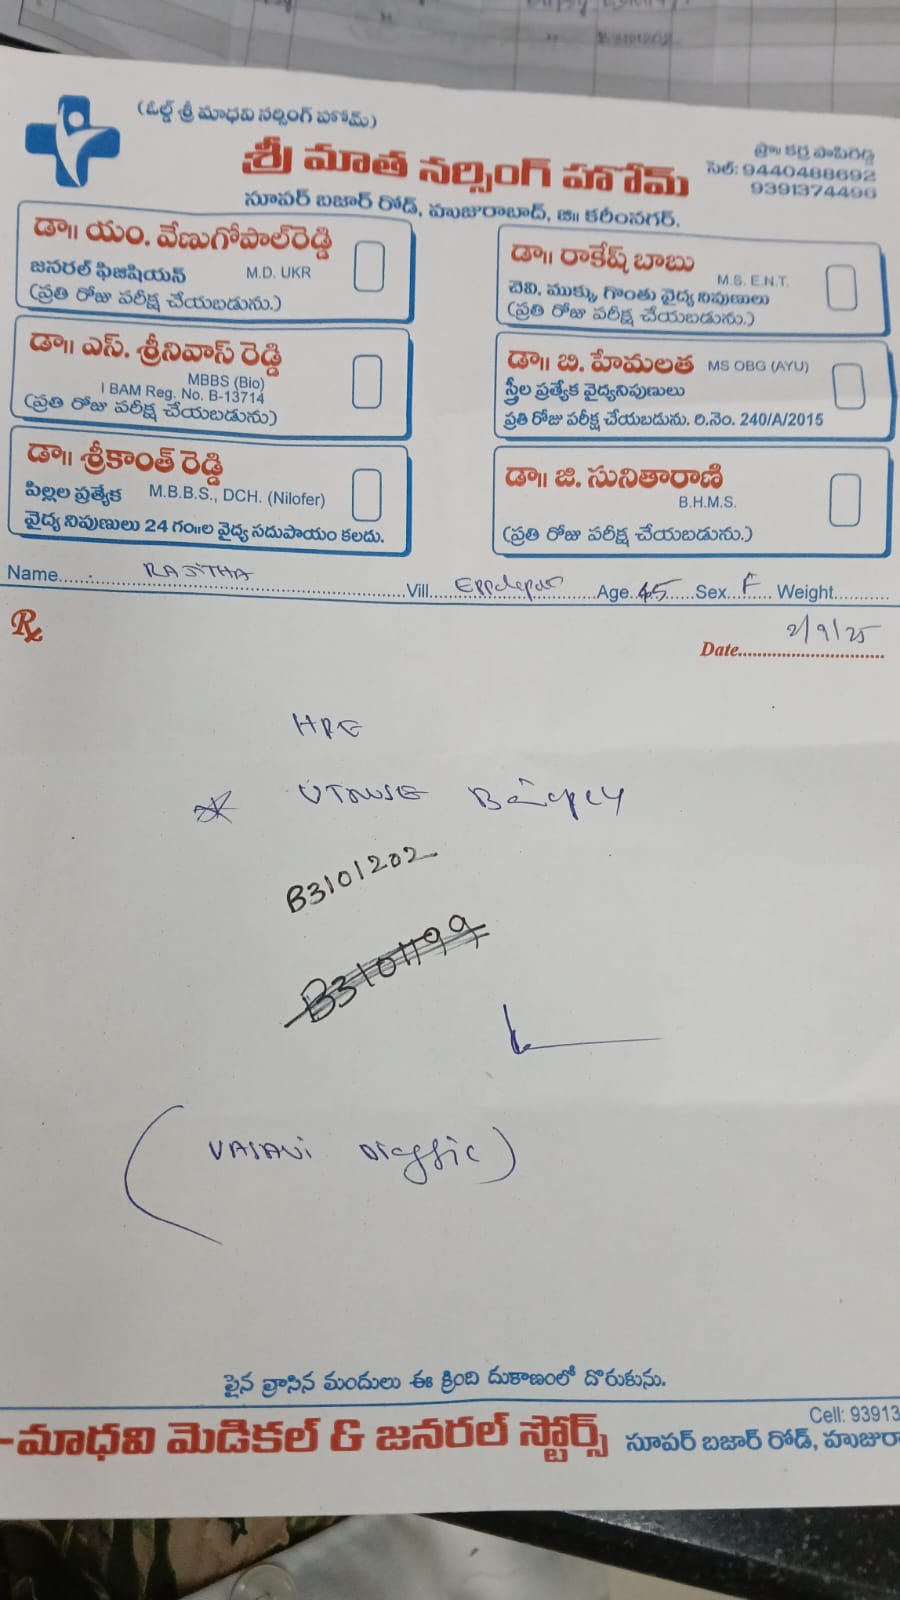 B3101202
(ఓల్డ్ శ్రీ మాధవి నర్సింగ్ హోమ్)
శ్రీ మాత నర్సింగ్ హోమ్
ప్రొ॥ కర్ర పాపిరెడ్డి
సెల్: 9440488692
9391374496
సూపర్ బజార్ రోడ్, హుజురాబాద్, జి॥ కరీంనగర్.
డా॥ యం. వేణుగోపాల్‌రెడ్డి
జనరల్ ఫిజిషియన్ M.D. UKR
(ప్రతి రోజు పరీక్ష చేయబడును.)
డా॥ రాకేష్ బాబు
M.S. E.N.T.
చెవి, ముక్కు, గొంతు వైద్య నిపుణులు
(ప్రతి రోజు పరీక్ష చేయబడును.)
డా॥ ఎస్. శ్రీనివాస్ రెడ్డి
MBBS (Bio)
I BAM Reg. No. B-13714
(ప్రతి రోజు పరీక్ష చేయబడును)
డా॥ బి. హేమలత MS OBG (AYU)
స్త్రీల ప్రత్యేక వైద్యనిపుణులు
ప్రతి రోజు పరీక్ష చేయబడును. రి.నెం. 240/A/2015
డా॥ శ్రీకాంత్ రెడ్డి
పిల్లల ప్రత్యేక M.B.B.S., DCH. (Nilofer)
వైద్య నిపుణులు 24 గం॥ల వైద్య సదుపాయం కలదు.
డా॥ జి. సునితారాణి
B.H.M.S.
(ప్రతి రోజు పరీక్ష చేయబడును.)
Name RAJITHA Vill. Age 45 Sex F Weight
Rx
Date 2/9/25
HPE
B3101202
B3101199
(VASAVI
పైన వ్రాసిన మందులు ఈ క్రింది దుకాణంలో దొరుకును.
Cell: 93913
మాధవి మెడికల్ & జనరల్ స్టోర్స్ సూపర్ బజార్ రోడ్, హుజురా